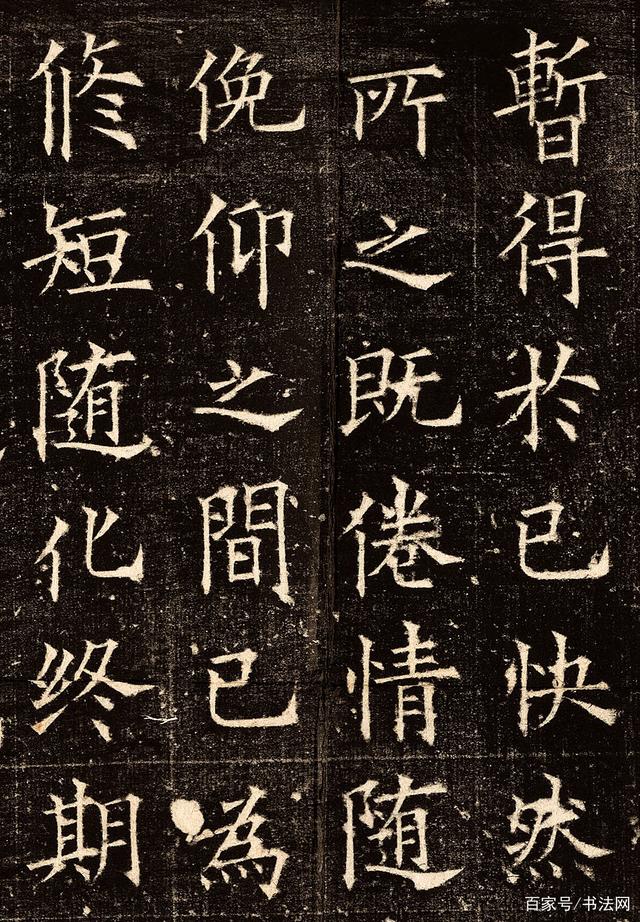 暫得於已快然
所之既倦情随
俛仰之間已為
修短随化终期
百家号/书法网